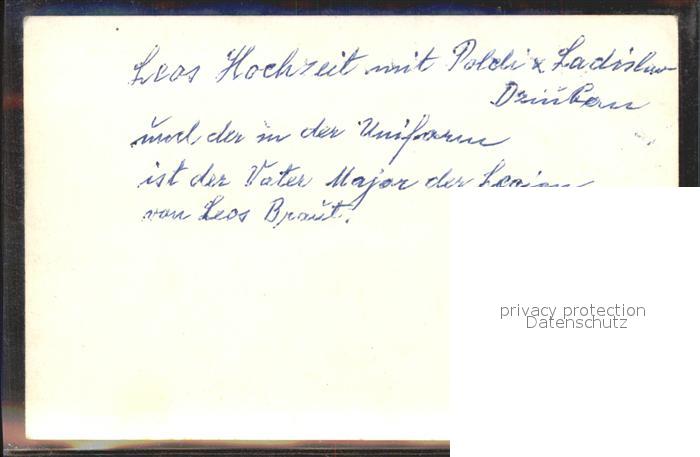 Leos Hochzeit mit Poldi & Ladislav
und der in der Uniform
ist der Vater Major der Legion
von Leos Braut.
privacy protection
Datenschutz